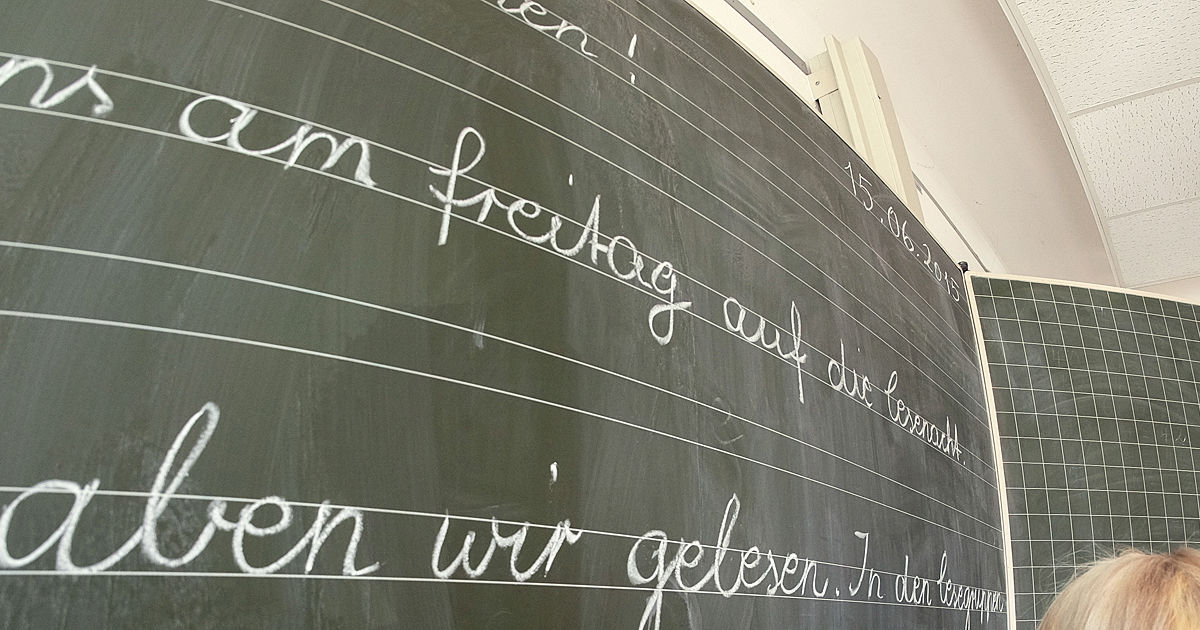 en!
15.06.2015
ns am freitag auf die lesenacht.
aben wir gelesen. In den lesegruppen